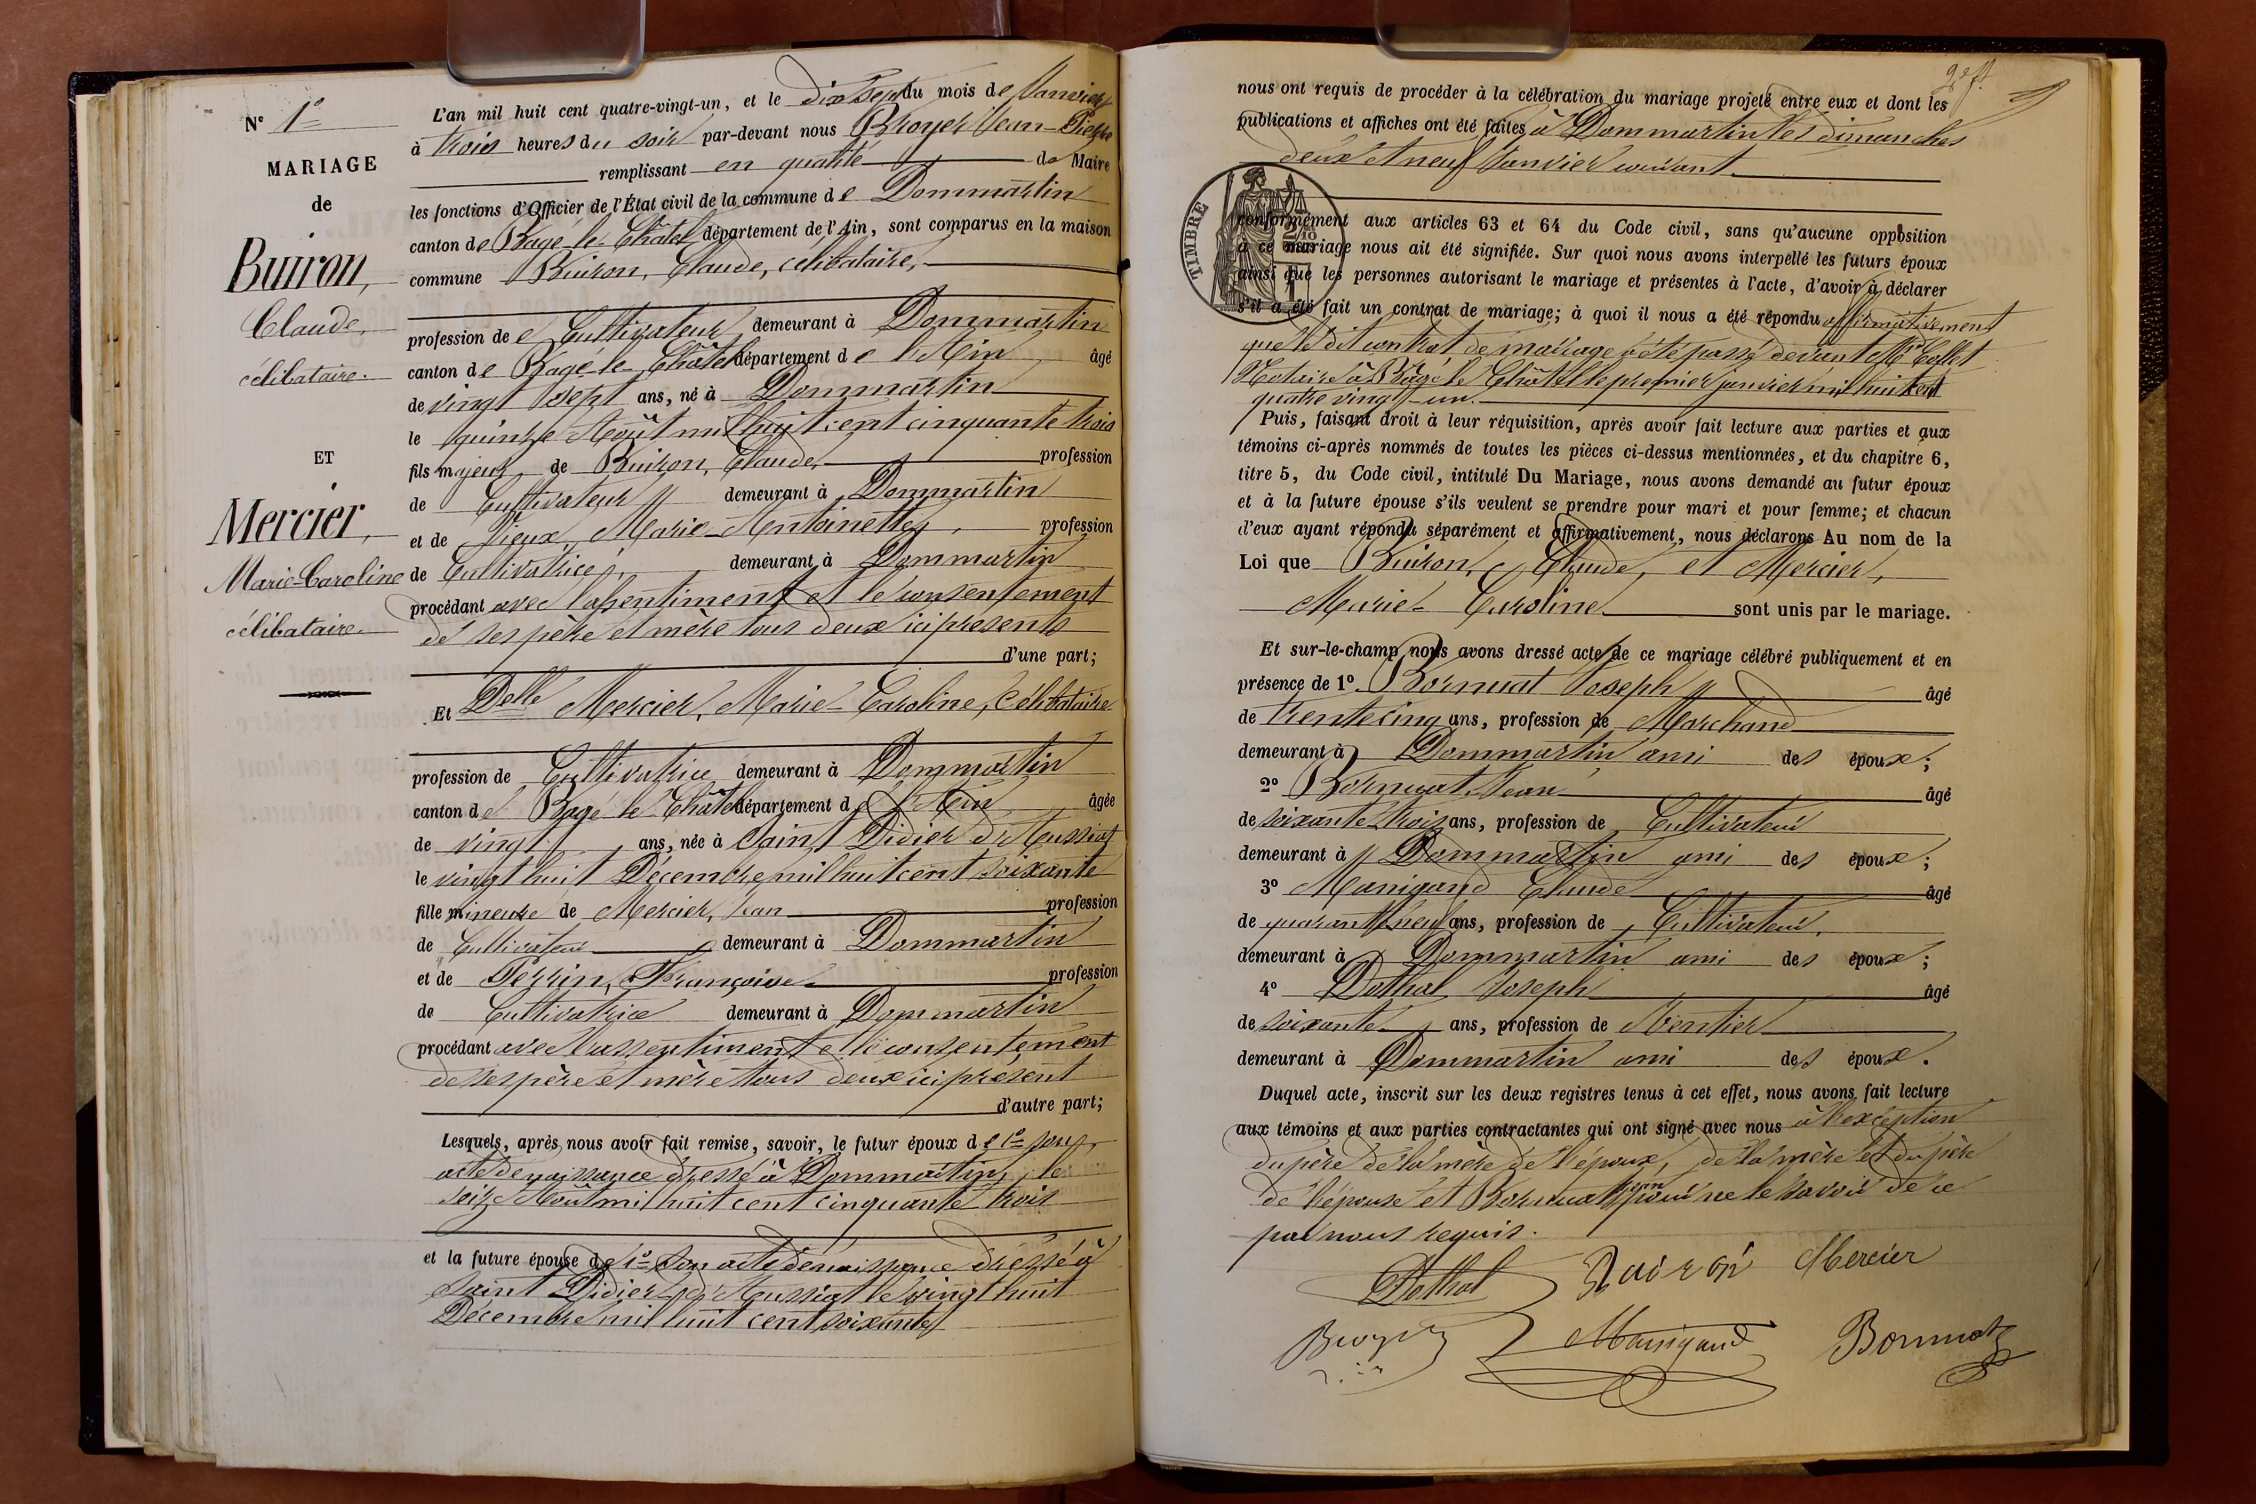 N° 1°
MARIAGE
de
Buiron,
Claude,
célibataire.
ET
Mercier,
Marie-Caroline
célibataire.
L'an mil huit cent quatre-vingt-un, et le dix sept du mois de Janvier
à trois heures du soir par-devant nous Broyer Jean-Pierre
remplissant en qualité de Maire
les fonctions d'Officier de l'État civil de la commune de Dommartin
canton de Bagé-le-Châtel département de l'Ain, sont comparus en la maison
commune Buiron, Claude, célibataire,
profession de Cultivateur demeurant à Dommartin
canton de Bagé-le-Châtel département de l'Ain âgé
de vingt sept ans, né à Dommartin
le quinze Août mil huit cent cinquante trois
fils majeur de Buiron, Claude, profession
de Cultivateur demeurant à Dommartin
et de Vieux, Marie-Antoinette, profession
de Cultivatrice, demeurant à Dommartin
procédant avec l'assentiment et le consentement
de ses père et mère tous deux ici présents
d'une part;
Et Delle Mercier, Marie-Caroline, Célibataire
profession de Cultivatrice demeurant à Dommartin
canton de Bagé-le-Châtel département de l'Ain âgée
de vingt ans, née à Saint Didier d'Aussiat
le vingt huit Décembre mil huit cent soixante
fille mineure de Mercier, Jean profession
de Cultivateur demeurant à Dommartin
et de Perrin, Françoise profession
de Cultivatrice demeurant à Dommartin
procédant avec l'assentiment et le consentement
de ses père et mère tous deux ici présent
d'autre part;
Lesquels, après nous avoir fait remise, savoir, le futur époux de 1° son
acte de naissance dressé à Dommartin, le
seize Août mil huit cent cinquante trois
et la future épouse de 1° son acte de naissance dressé à
Saint Didier d'Aussiat le vingt huit
Décembre mil huit cent soixante
nous ont requis de procéder à la célébration du mariage projeté entre eux et dont les
publications et affiches ont été faites à Dommartin les dimanches
deux et neuf Janvier courant.
TIMBRE
conformément aux articles 63 et 64 du Code civil, sans qu'aucune opposition
à ce mariage nous ait été signifiée. Sur quoi nous avons interpellé les futurs époux
ainsi que les personnes autorisant le mariage et présentes à l'acte, d'avoir à déclarer
s'il a été fait un contrat de mariage; à quoi il nous a été répondu affirmativement
que le dit contrat de mariage a été passé devant Me Collet
Notaire à Bagé le Châtel le premier janvier mil huit cent
quatre vingt-un.
Puis, faisant droit à leur réquisition, après avoir fait lecture aux parties et aux
témoins ci-après nommés de toutes les pièces ci-dessus mentionnées, et du chapitre 6,
titre 5, du Code civil, intitulé Du Mariage, nous avons demandé au futur époux
et à la future épouse s'ils veulent se prendre pour mari et pour femme; et chacun
d'eux ayant répondu séparément et affirmativement, nous déclarons Au nom de la
Loi que Buiron, Claude, et Mercier,
Marie-Caroline sont unis par le mariage.
Et sur-le-champ nous avons dressé acte de ce mariage célébré publiquement et en
présence de 1° Bornuat Joseph âgé
de trente cinq ans, profession de Marchand
demeurant à Dommartin ami des époux;
2° Bornuat Jean âgé
de soixante trois ans, profession de Cultivateur
demeurant à Dommartin ami des époux;
3° Manigand Claude âgé
de quarante neuf ans, profession de Cultivateur,
demeurant à Dommartin ami des époux;
4° Dothal Joseph âgé
de soixante ans, profession de Rentier
demeurant à Dommartin ami des époux.
Duquel acte, inscrit sur les deux registres tenus à cet effet, nous avons fait lecture
aux témoins et aux parties contractantes qui ont signé avec nous à l'exception
du père de la mère de l'époux, de la mère et du père
de l'épouse et Bornuat Jean pour ne le savoir de ce
par nous requis.
Dothal Buiron Mercier
Broyer Manigand Bornuat